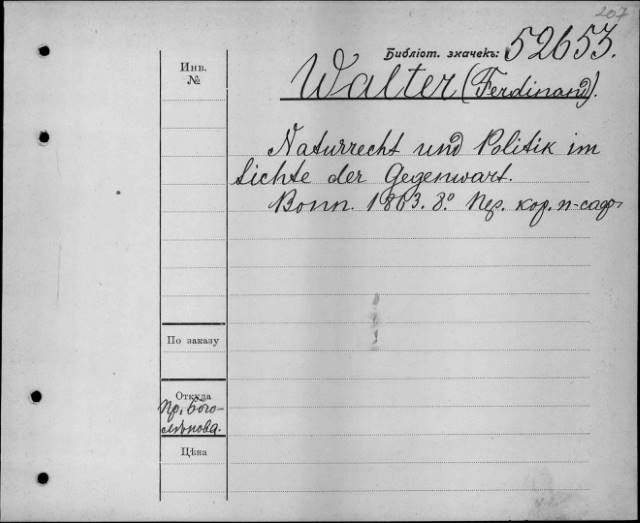 207
Библіот. значекъ: 52653.
Инв.
№
Walter (Ferdinand).
Naturrecht und Politik im
Lichte der Gegenwart.
Bonn. 1863. 8° Пер. кор. п-саф.
По заказу
Откуда
Пр. Бого-
лѣпова.
Цѣна